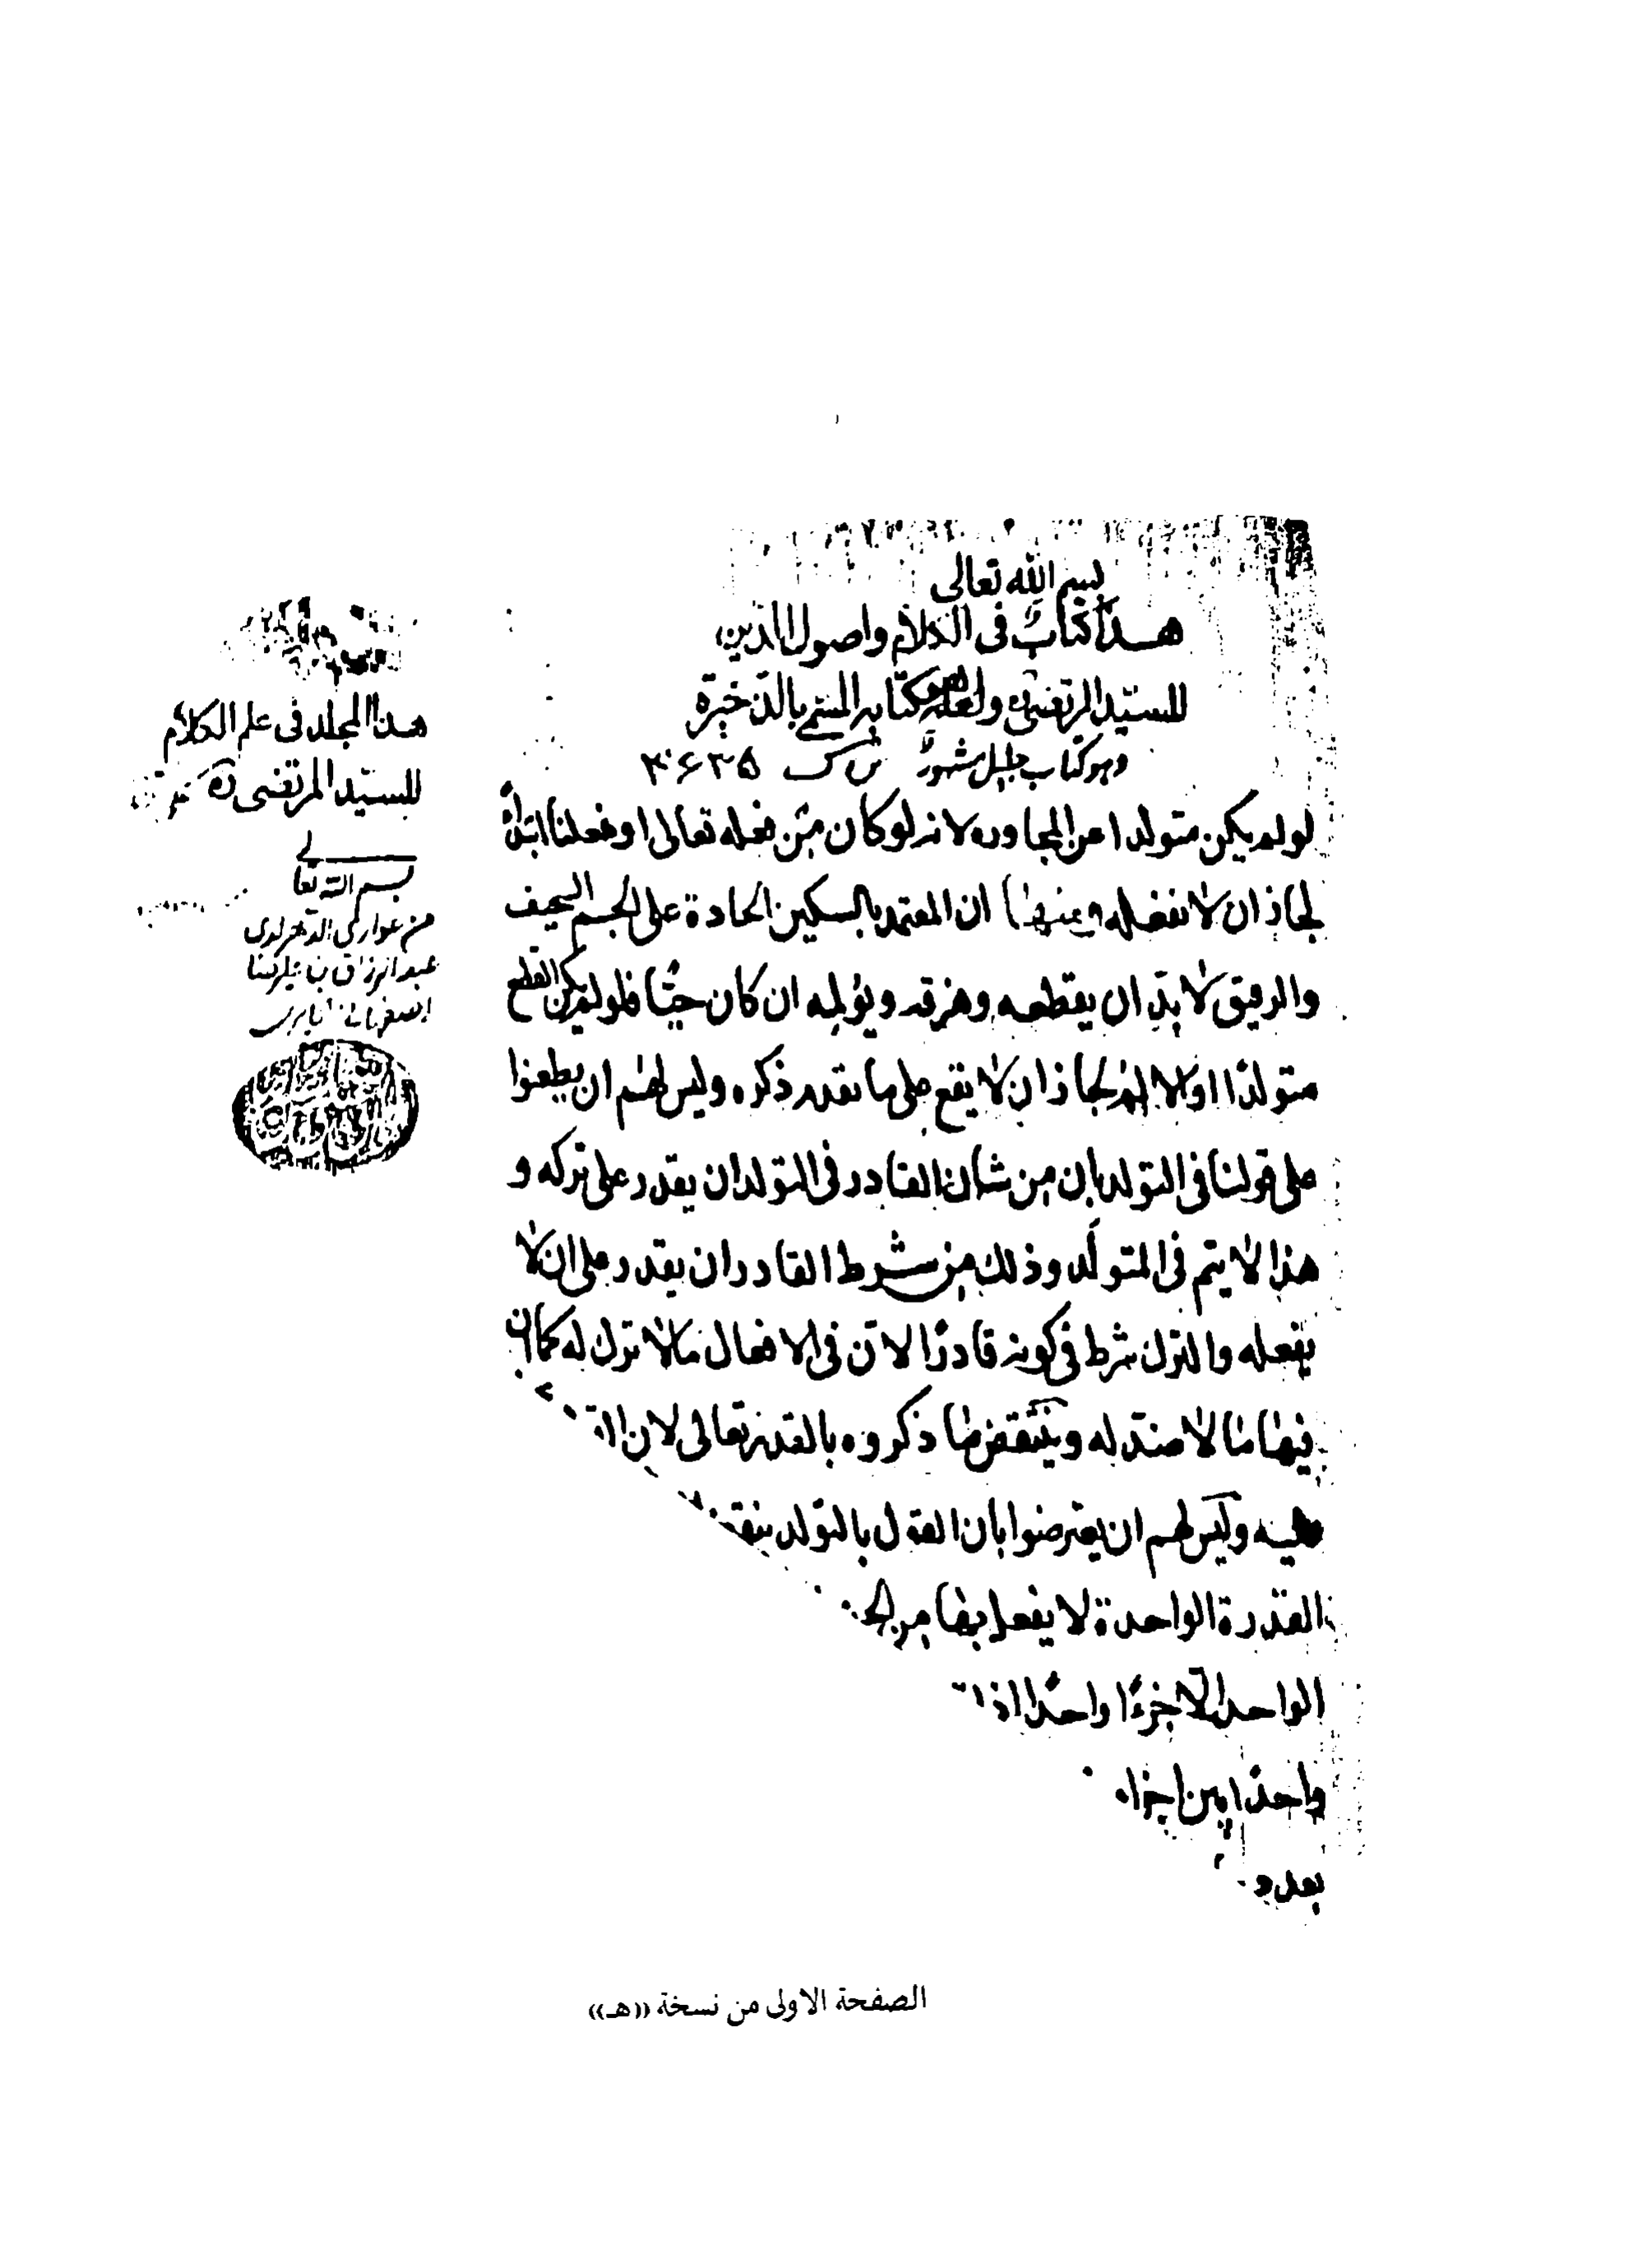 بسم الله تعالى
هذا كتاب فى الكلام واصول الدين
للسيد المرتضى ولعله هو كتابه المسمى بالذخيرة
وهو كتاب جليل مشهور
لو لم يكن متولدا عن المجاوره لانه لو كان من فعله تعالى او فعلنا ابتداً
لجاز ان لا نفعله ان المعتمد بالسكين الحادة على الجسم السخيف
والرقيق لا بد ان يقطعه ويؤلمه ان كان حيّا فلو لم يكن القطع
متولدًا لجاز ان لا يقع على ما تقدم ذكره وليس لهم ان يطعنوا
على قولنا فى التولد بان من شان القادر فى التولد ان يقدر على تركه و
هذا لا يتم فى المتولد وذلك من شرط القادر ان يقدر على ان لا
يفعله والترك شرط فى كونه قادرًا لان فى الافعال ما لا ترك له كما ان
فيها ما لا ضد له وينتقض ما ذكروه بالقديم تعالى لان
عليه وليس لهم ان يعترضوا بان القول بالتولد ينقض
القدرة الواحدة لا يفعل بها من
الواحد الا جزءًا واحدًا
واحدًا من اجزاء
بعد و
هذا المجلد فى علم الكلام
للسيد المرتضى ره
بسم الله تعا
من عوارى الدهر لدى
عبد الرزاق بن
الصفحة الاولى من نسخة ((هـ))